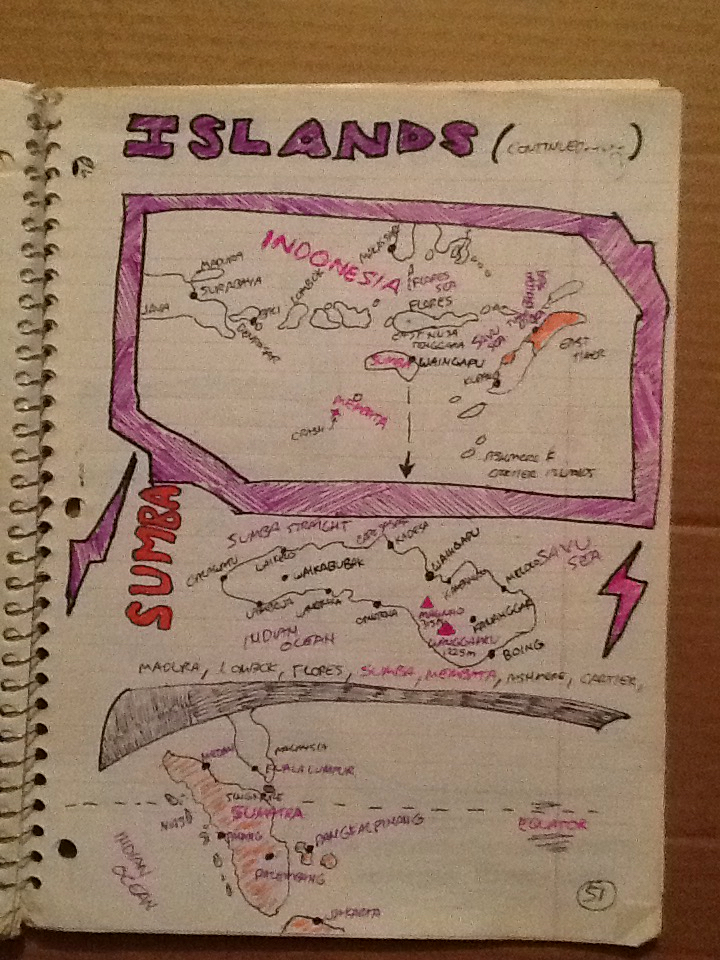 ISLANDS (CONTINUED....)
INDONESIA
MAKASSAR
MADURA
SURABAYA
JAVA
BALI
DENPASAR
LOMBOK
FLORES SEA
FLORES
EAST NUSA TENGGARA
SAVU SEA
EAST TIMOR
SUMBA
WAINGAPU
KUPANG
MEMBATA
CRASH
ASHMORE &
CARTIER ISLANDS
SUMBA
SUMBA STRAIGHT
SAVU SEA
WAIKELO
WAIKABUBAK
KADESA
WAINGAPU
MELOLO
INDIAN OCEAN
WANGGAMETI
1225m
BOING
MADURA, LOMBOK, FLORES, SUMBA, MEMBATA, ASHMORE, CARTIER,
MEDAN
MALAYSIA
KUALA LUMPUR
SINGAPORE
SUMATRA
EQUATOR
NIAS
PADANG
PANGKALPINANG
PALEMBANG
INDIAN OCEAN
JAKARTA
51